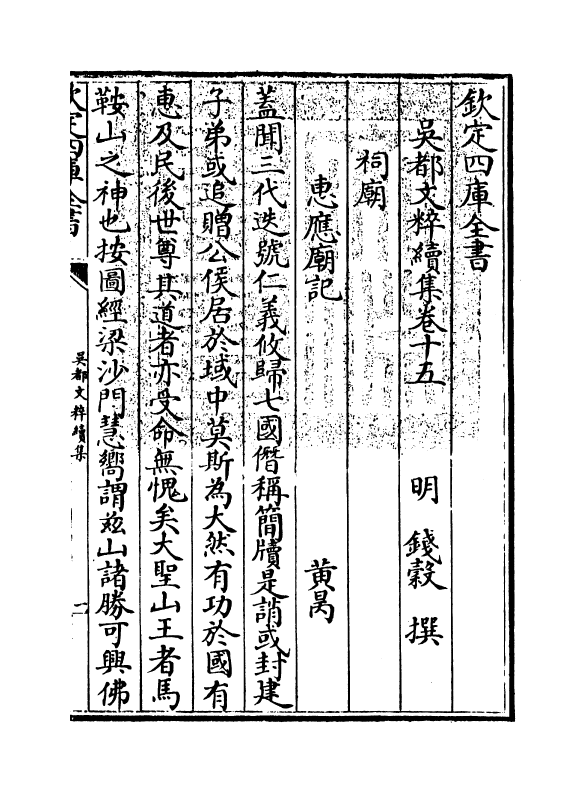 欽定四庫全書
吳都文粹續集卷十五
明 錢穀 撰
祠廟
惠應廟記
黃昺
蓋聞三代迭號仁義攸歸七國僭稱簡牘是誚或封建
子弟或追贈公侯居於域中莫斯為大然有功於國有
惠及民後世尊其道者亦受命無愧矣大聖山王者馬
鞍山之神也按圖經梁沙門慧嚮謂兹山諸勝可興佛
欽定四庫全書
吳都文粹續集